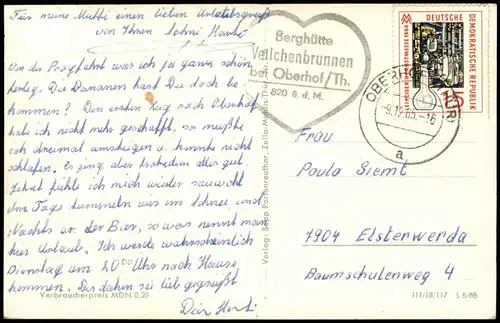 Für meine Mutti einen lieben Urlaubsgruß
von Ihrem Sohne
Von der Prag war ich ja ganz schön
fertig. Die Bananen hast Du doch be
kommen? Den ersten Tag nach Oberhof
habe ich nicht mehr geschafft, so mußte
ich dreimal umsteigen u. konnte nicht
schlafen. Es ging aber trotzdem alles gut.
Jetzt fühle ich mich wieder sauwohl
Am Tage tummeln wir im Schnee und
Nachts an der Bier, so was nennt man
hier Urlaub. Ich werde wahrscheinlich
Dienstag um 20°° Uhr nach Hause
kommen. Bis dahin sei lieb gegrüßt
Dein
Verbraucherpreis MDN 0,20
Berghütte
Veilchenbrunnen
bei Oberhof/Th.
820 ü. d. M.
DEUTSCHE
DEMOKRATISCHE REPUBLIK
15
OBERHOF
-9.12.65.-16
a
Verlag: Sepp Zella-Mehlis/Thür.
Frau
Paula Siemt
7904 Elsterwerda
Baumschulenweg 4
III/18/117 S 5/65